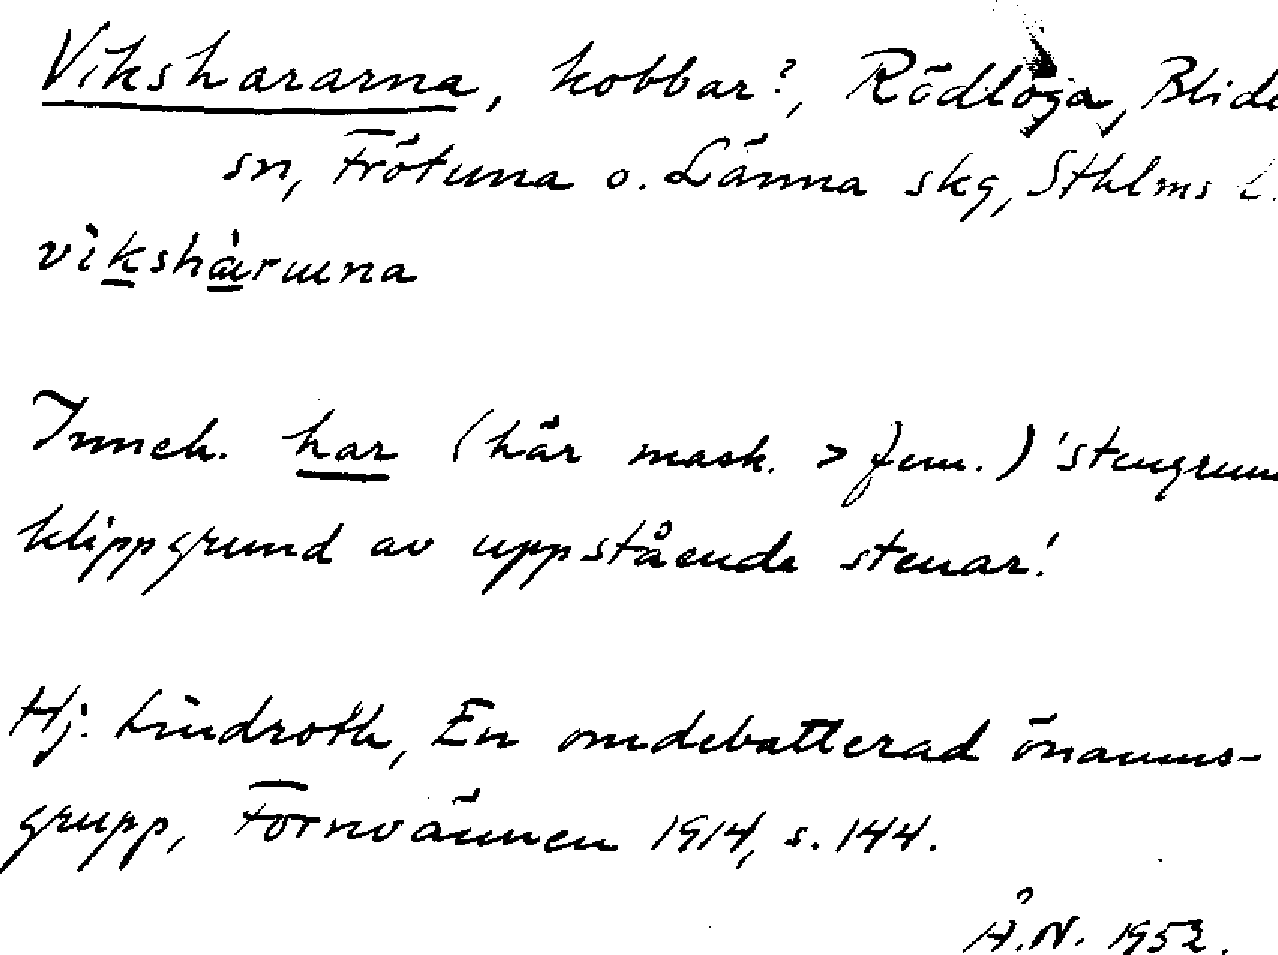 Vikshararna, kobbar?, Rödlöga, Blidö
sn, Frötuna o. Länna skg, Sthlms l.
vikshàruna
Inneh. har (här mask. > fem.) 'stengrund
klippgrund av uppstående stenar'.
Hj. Lindroth, En omdebatterad önamns-
grupp, Fornvännen 1914, s. 144.
Å.N. 1952.